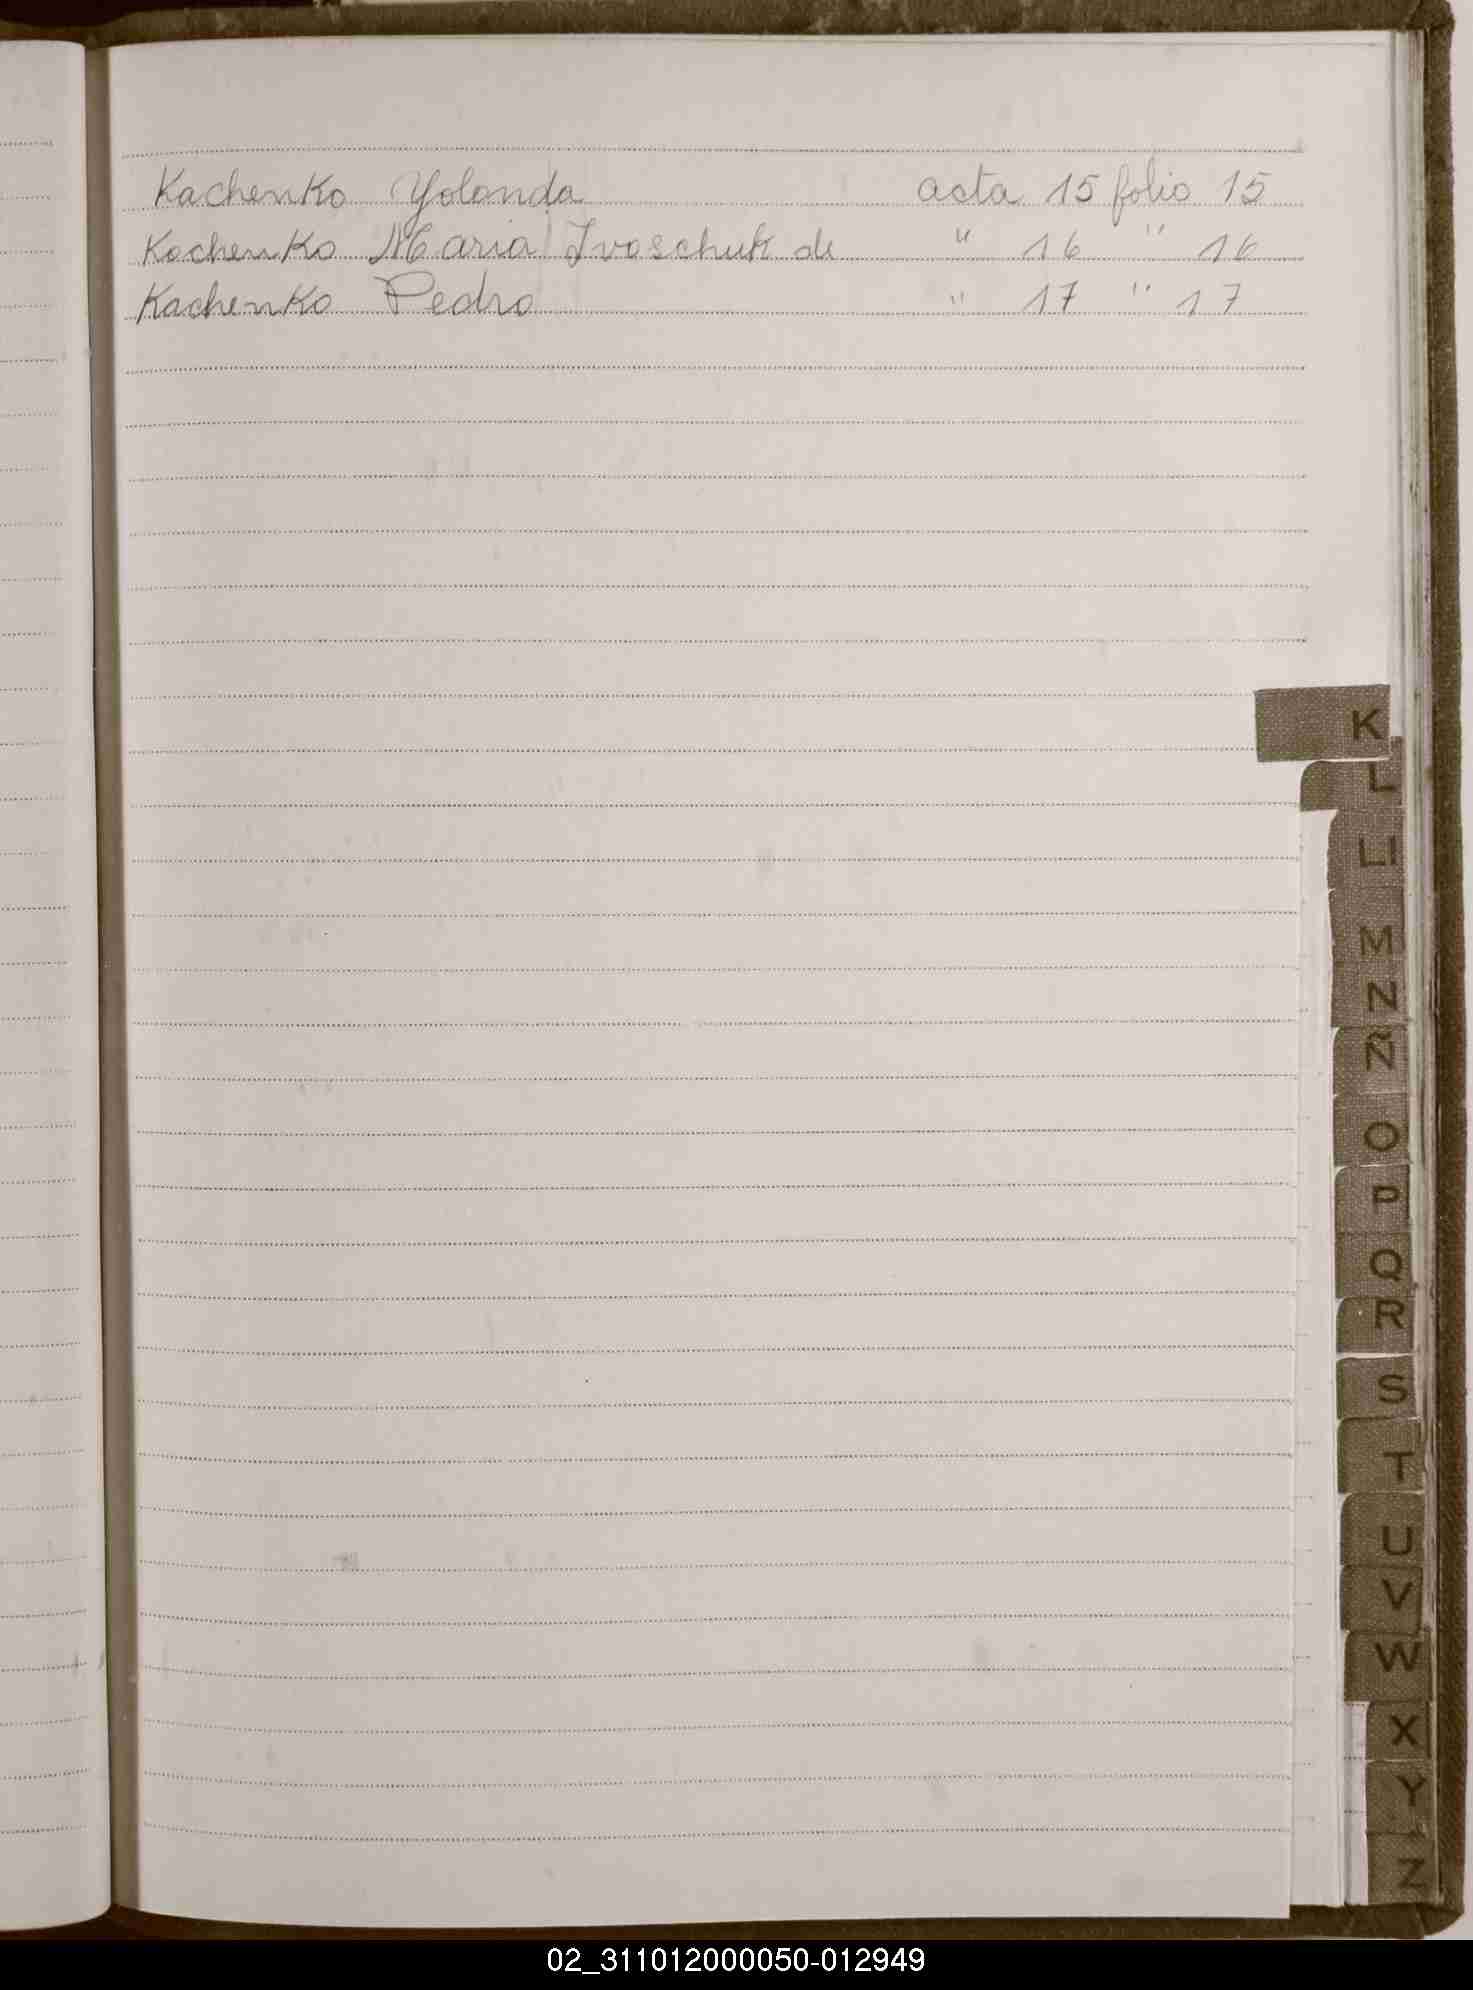 Kachenko Yolanda acta 15 folio 15
Kochenko Maria Ivoschuk de " 16 " 16
Kachenko Pedro " 17 " 17
K
L
LL
M
N
Ñ
O
P
Q
R
S
T
U
V
W
X
Y
Z
02_311012000050-012949